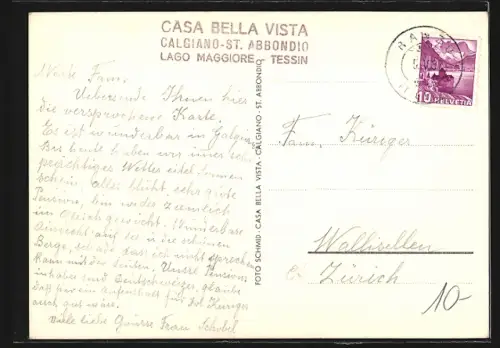 CASA BELLA VISTA
CALGIANO-ST. ABBONDIO
LAGO MAGGIORE TESSIN
Werte Fam.
Uebersende Ihnen hier
die versprochene Karte.
Es ist wunderbar in Calgiano
Bis heute haben wir immer sehr
prächtiges Wetter viel Sonnen
schein, alles blüht, sehr gute
Pension, bin wieder ziemlich
im Gleichgewicht. Wunderbare
Aussicht auf See in die schönen
Berge,
Kann mit den Leuten. Unsere Pensions
inhaber sind Deutschweizer, glaube
dass hier ein Aufenthalt für Frl Küriger
auch gut wäre.
Viele liebe Grüsse Frau Schobel
FOTO SCHMID · CASA BELLA VISTA · CALGIANO · ST. ABBONDIO
RAN
10 HELVETIA
Fam. Küriger
Wallisellen
Zürich
10-